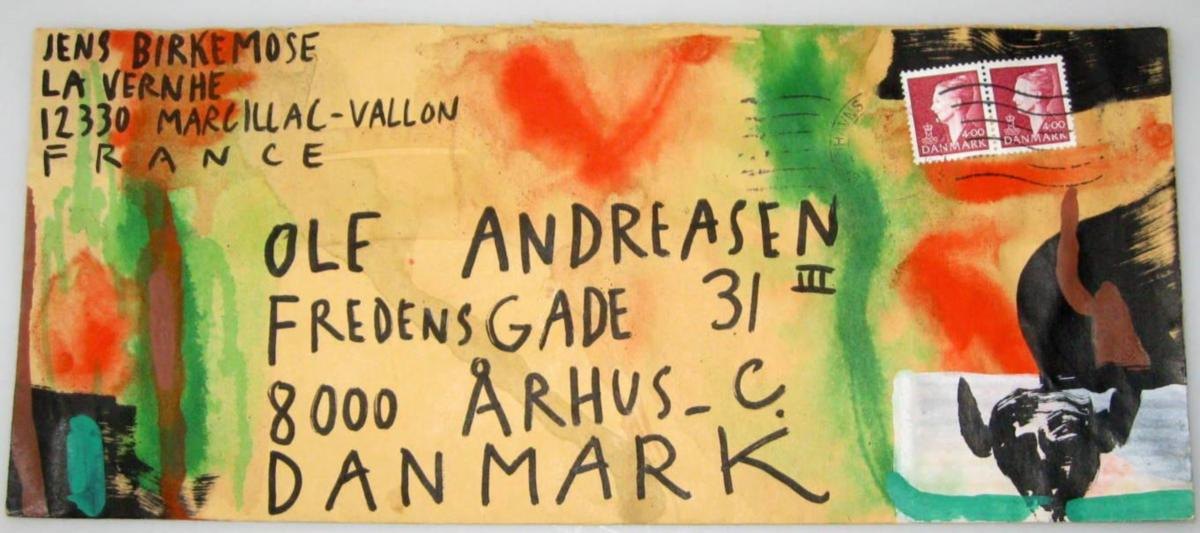 JENS BIRKEMOSE
LA VERNHE
12330 MARCILLAC-VALLON
FRANCE
4.00 4.00
DANMARK DANMARK
OLE ANDREASEN
FREDENSGADE 31 III
8000 ÅRHUS-C.
DANMARK